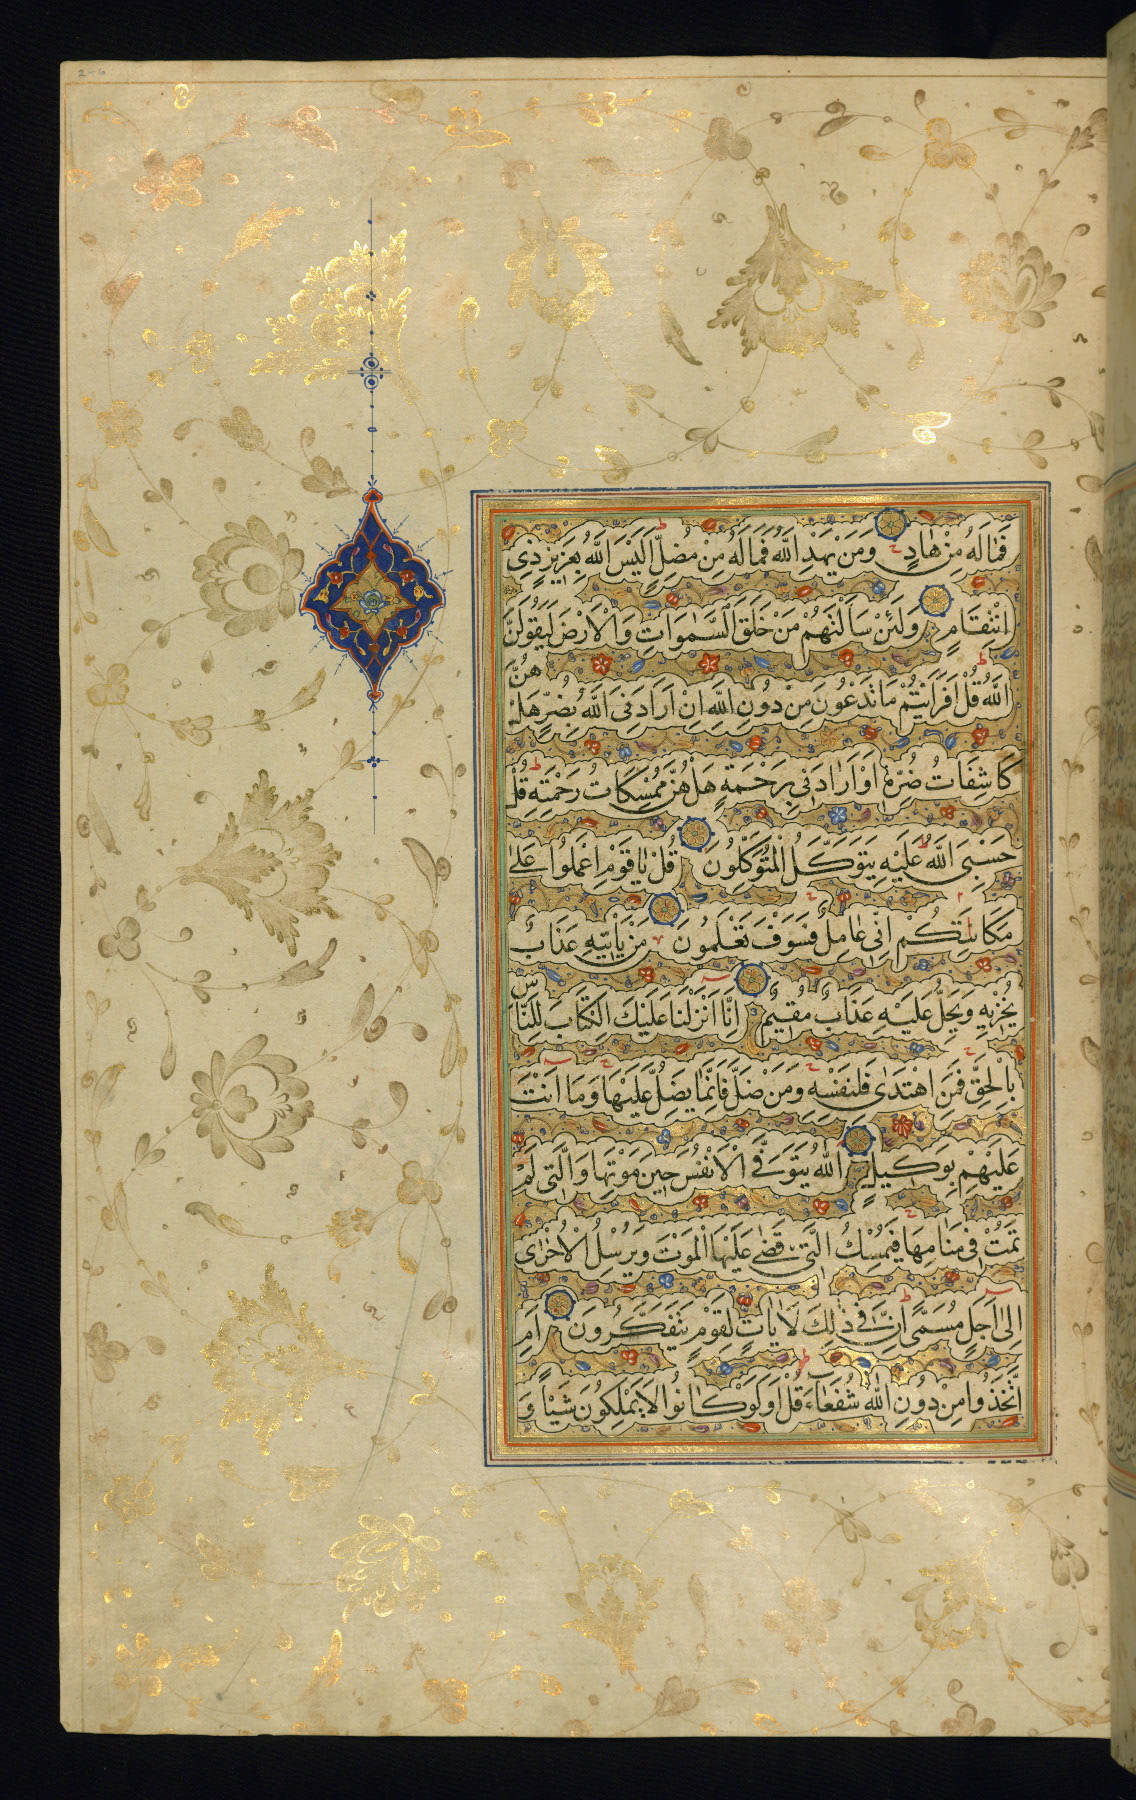 فَمَا لَهُ مِنْ هَادٍ وَمَنْ يَهْدِ اللّٰهُ فَمَا لَهُ مِنْ مُضِلٍّ اَلَيْسَ اللّٰهُ بِعَزِيزٍ ذِي
انْتِقَامٍ وَلَئِنْ سَاَلْتَهُمْ مَنْ خَلَقَ السَّمٰوَاتِ وَالْاَرْضَ لَيَقُولُنَّ
اللّٰهُ قُلْ اَفَرَاَيْتُمْ مَا تَدْعُونَ مِنْ دُونِ اللّٰهِ اِنْ اَرَادَنِىَ اللّٰهُ بِضُرٍّ هَلْ هُنَّ
كَاشِفَاتُ ضُرِّهِ اَوْ اَرَادَنِى بِرَحْمَةٍ هَلْ هُنَّ مُمْسِكَاتُ رَحْمَتِهِ قُلْ
حَسْبِىَ اللّٰهُ عَلَيْهِ يَتَوَكَّلُ الْمُتَوَكِّلُونَ قُلْ يَا قَوْمِ اعْمَلُوا عَلٰى
مَكَانَتِكُمْ اِنِّى عَامِلٌ فَسَوْفَ تَعْلَمُونَ مَنْ يَاْتِيهِ عَذَابٌ
يُخْزِيهِ وَيَحِلُّ عَلَيْهِ عَذَابٌ مُقِيمٌ اِنَّا اَنْزَلْنَا عَلَيْكَ الْكِتَابَ لِلنَّاسِ
بِالْحَقِّ فَمَنِ اهْتَدٰى فَلِنَفْسِهِ وَمَنْ ضَلَّ فَاِنَّمَا يَضِلُّ عَلَيْهَا وَمَا اَنْتَ
عَلَيْهِمْ بِوَكِيلٍ اَللّٰهُ يَتَوَفَّى الْاَنْفُسَ حِينَ مَوْتِهَا وَالَّتِى لَمْ
تَمُتْ فِى مَنَامِهَا فَيُمْسِكُ الَّتِى قَضٰى عَلَيْهَا الْمَوْتَ وَيُرْسِلُ الْاُخْرٰى
اِلٰى اَجَلٍ مُسَمًّى اِنَّ فِى ذٰلِكَ لَاٰيَاتٍ لِقَوْمٍ يَتَفَكَّرُونَ اَمِ
اتَّخَذُوا مِنْ دُونِ اللّٰهِ شُفَعَاءَ قُلْ اَوَلَوْ كَانُوا لَا يَمْلِكُونَ شَيْـًٔا وَ